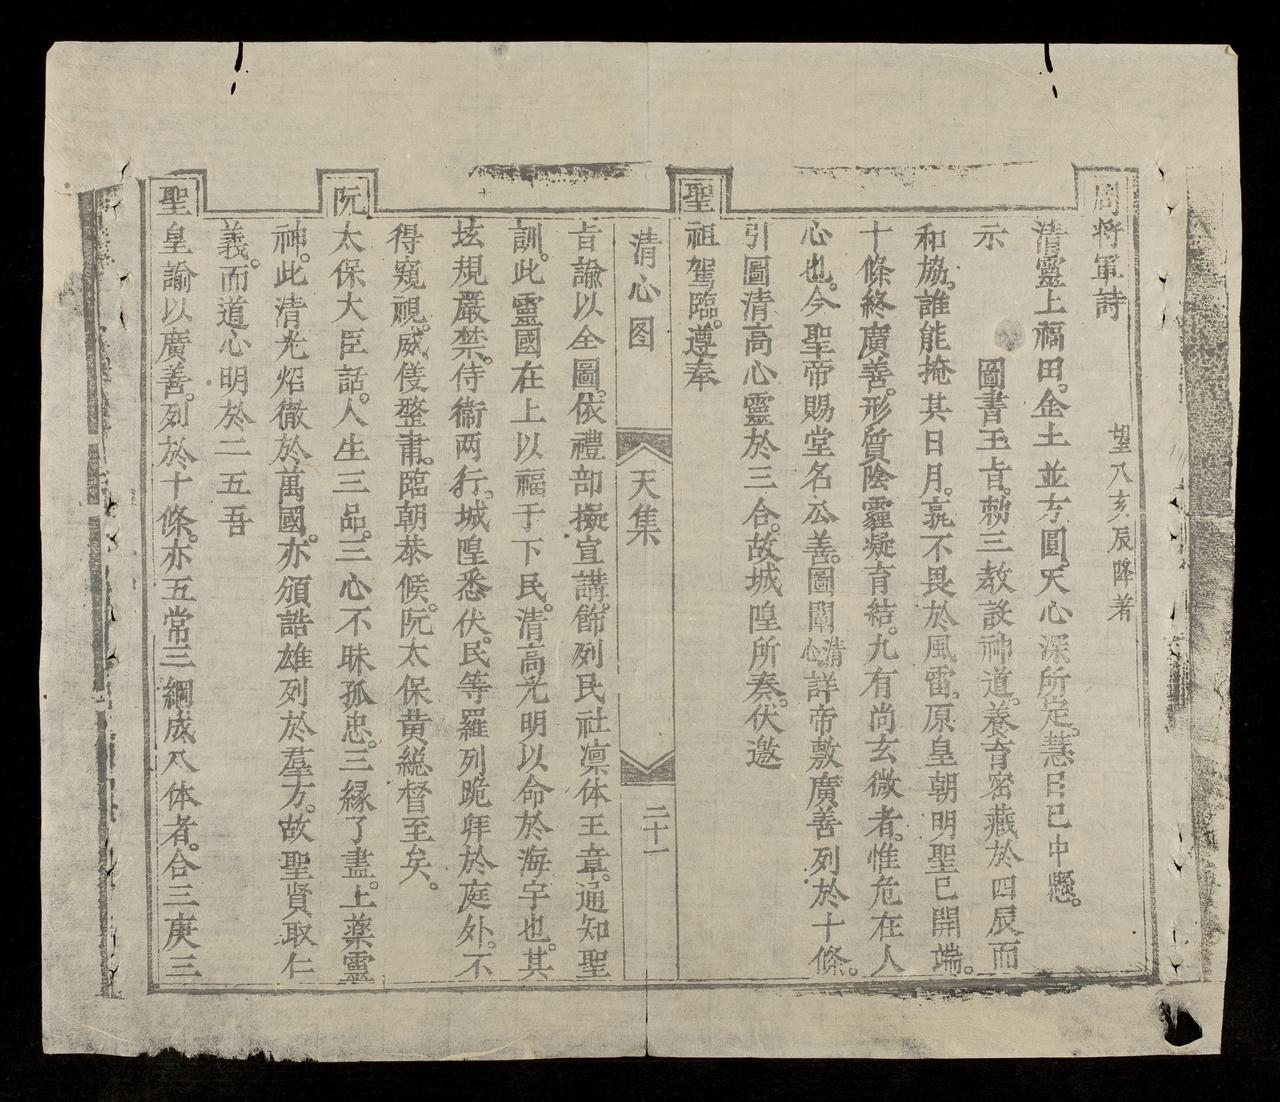 周將軍詩 望八亥辰降著
清靈上福田。金土並方圓。天心深所定。慧日已中懸。
示 圖書玉旨。勅三教設神道。養育密藏於四辰而
和協。誰能掩其日月。孰不畏於風雷。原皇朝明聖已開端。
十條終廣善。形質陰霾凝育結。九有尚玄微者。惟危在人
心也。今聖帝賜堂名公善。圖闡清心詳帝敷廣善列於十條。
引圖清高心靈於三合。故城隍所奏。伏邀
聖祖駕臨。遵奉
清心图 天集 二十一
旨諭以全圖。依禮部擬宣講。飾列民社凛体王章。通知聖
訓。此靈國在上以福于下民。清高光明以命於海宇也。其
垓規嚴禁。侍衞两行。城隍悉伏。民等羅列跪拜於庭外。不
得窺視。威儀整肅。臨朝恭候。阮太保黄総督至矣。
阮太保大臣話。人生三品。三心不昧孤忠。三緣了盡。上藥靈
神。此清光炤徹於萬國。亦頒誥雄列於羣方。故聖賢取仁
義。而道心明於二五吾
聖皇諭以廣善。列於十條。亦五常三綱成八体者。合三庚三